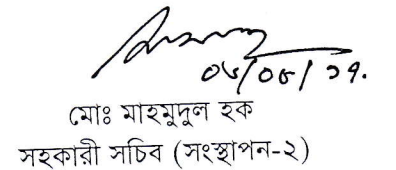 ০৮/০৮/১৭.
মোঃ মাহমুদুল হক
সহকারী সচিব (সংস্থাপন-২)